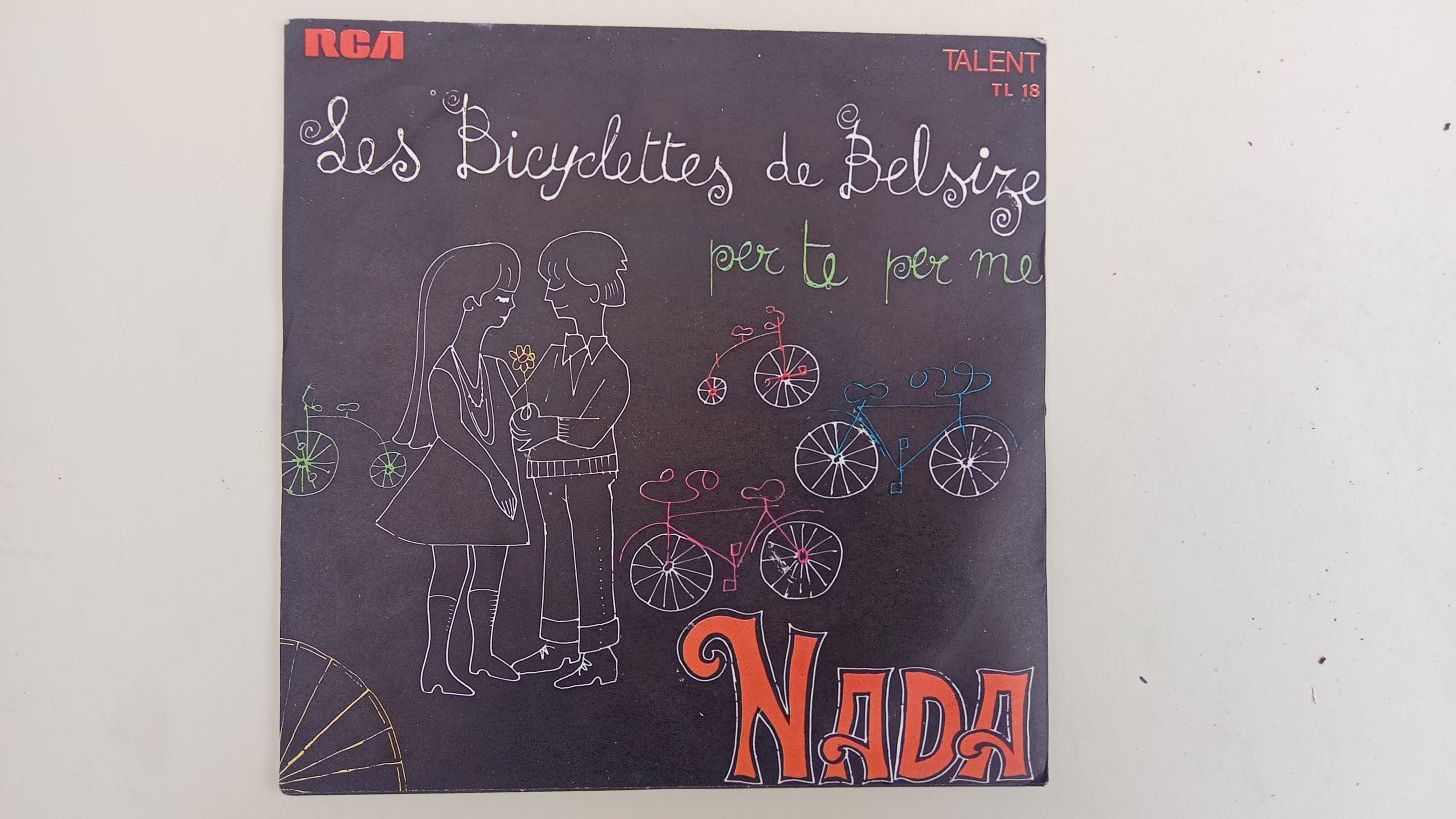 RCA
TALENT
TL 18
Les Bicyclettes de Belsize
per te per me
NADA